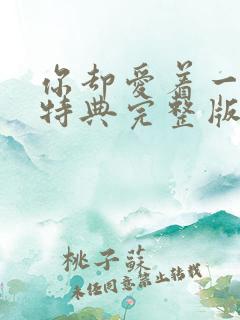 你却爱着一
特典完整版
桃子蘇
未经同意禁止转载